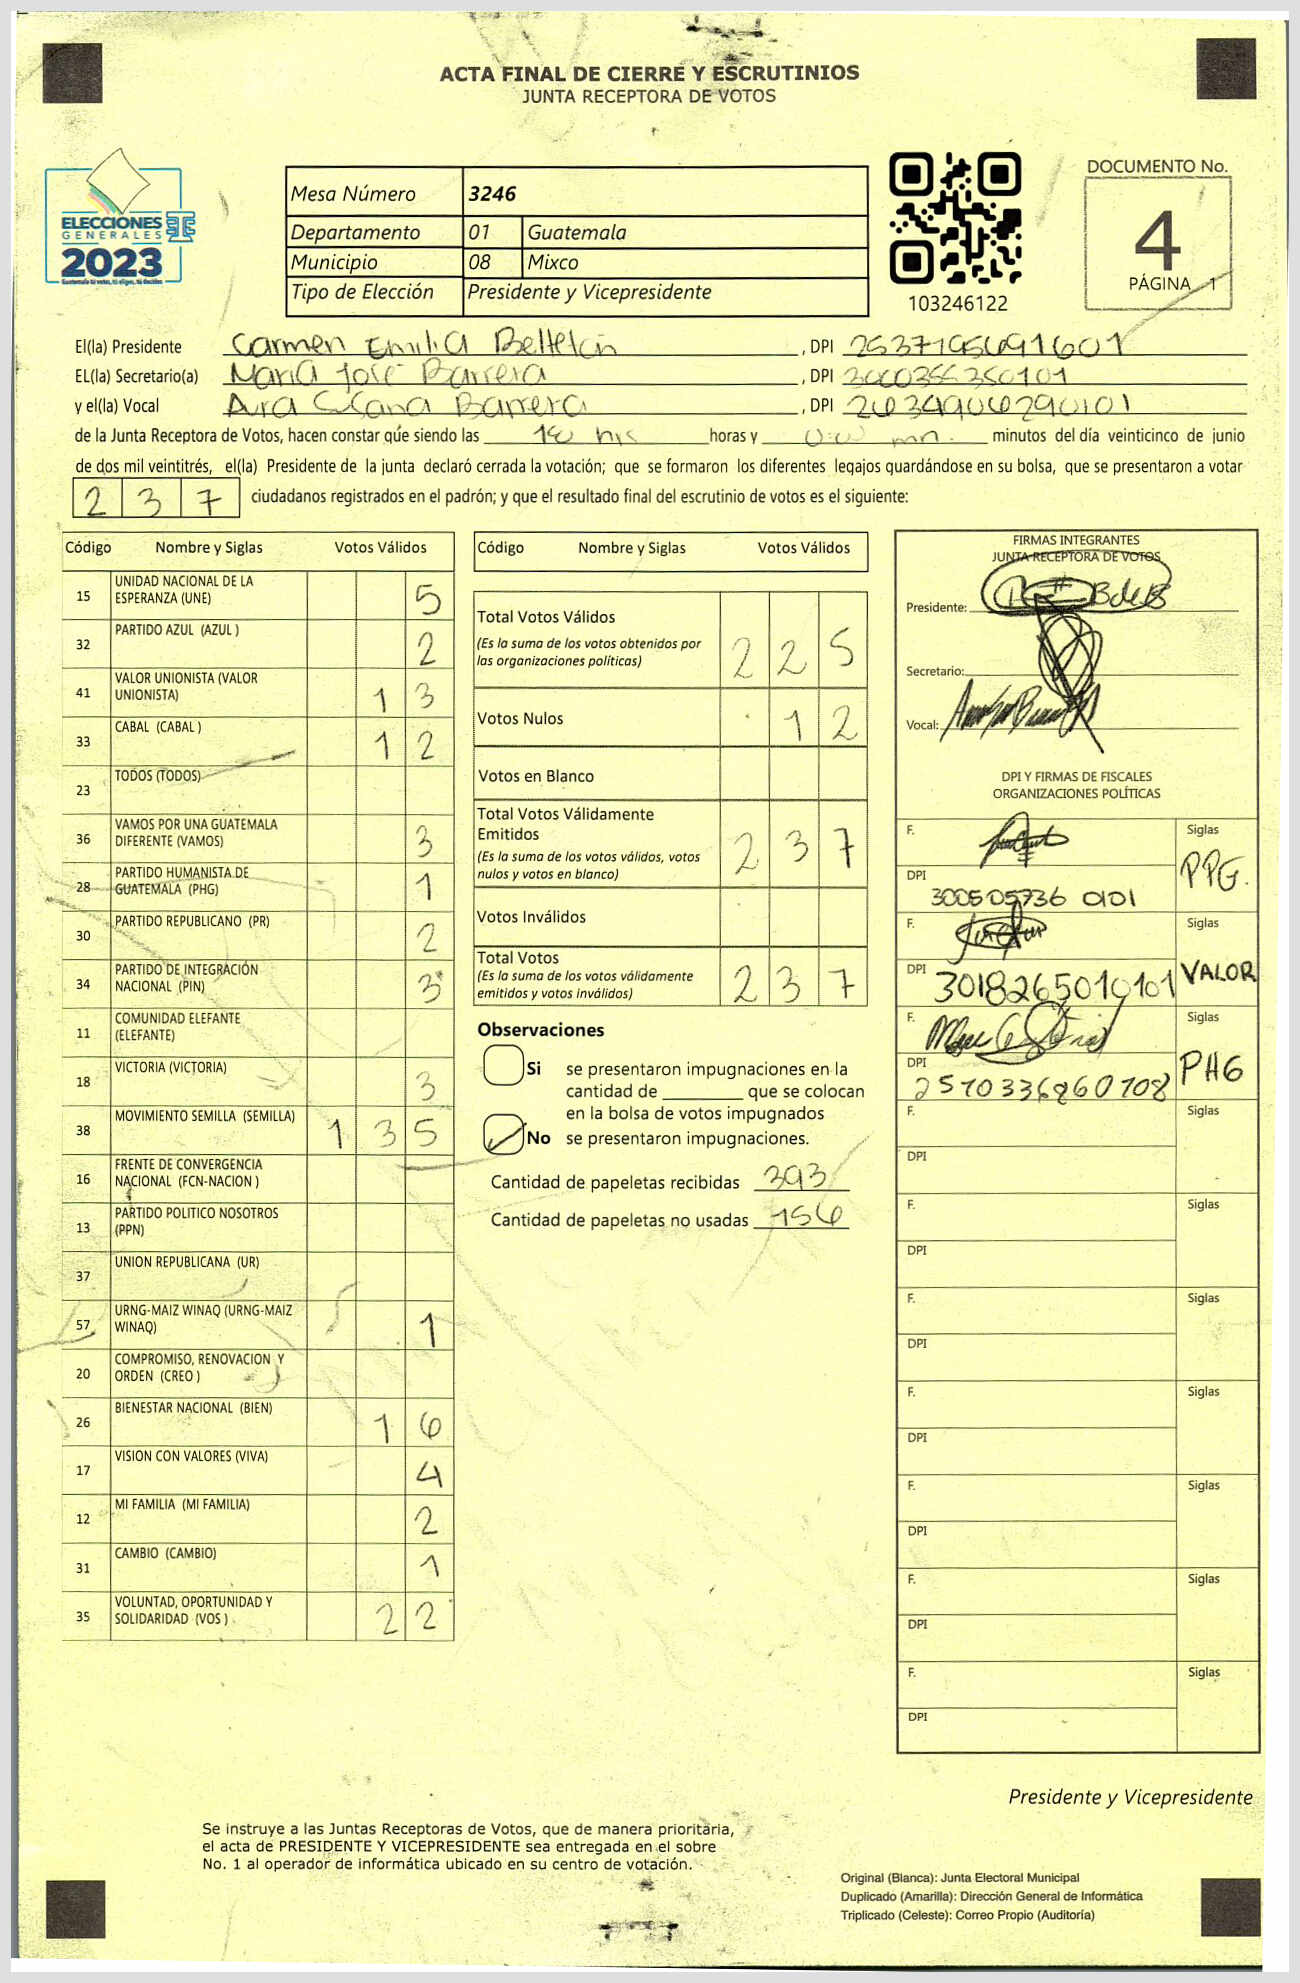 ACTA FINAL DE CIERRE Y ESCRUTINIOS
JUNTA RECEPTORA DE VOTOS
ELECCIONES
GENERALES
2023
Mesa Número 3246
Departamento 01 Guatemala
Municipio 08 Mixco
Tipo de Elección Presidente y Vicepresidente
103246122
DOCUMENTO No.
4
PÁGINA 1
El(la) Presidente Carmen Emilia , DPI
EL(la) Secretario(a) Maria José Barrera , DPI
y el(la) Vocal Barrera , DPI
de la Junta Receptora de Votos, hacen constar qúe siendo las 18 hrs horas y minutos del día veinticinco de junio
de dos mil veintitrés, el(la) Presidente de la junta declaró cerrada la votación; que se formaron los diferentes legajos guardándose en su bolsa, que se presentaron a votar
237 ciudadanos registrados en el padrón; y que el resultado final del escrutinio de votos es el siguiente:
Código Nombre y Siglas Votos Válidos
15 UNIDAD NACIONAL DE LA
ESPERANZA (UNE) 5
32 PARTIDO AZUL (AZUL ) 2
41 VALOR UNIONISTA (VALOR
UNIONISTA) 13
33 CABAL (CABAL ) 12
23 TODOS (TODOS)
36 VAMOS POR UNA GUATEMALA
DIFERENTE (VAMOS) 3
28 PARTIDO HUMANISTA DE
GUATEMALA (PHG) 1
30 PARTIDO REPUBLICANO (PR) 2
34 PARTIDO DE INTEGRACIÓN
NACIONAL (PIN) 3
11 COMUNIDAD ELEFANTE
(ELEFANTE)
18 VICTORIA (VICTORIA) 3
38 MOVIMIENTO SEMILLA (SEMILLA) 135
16 FRENTE DE CONVERGENCIA
NACIONAL (FCN-NACION )
13 PARTIDO POLITICO NOSOTROS
(PPN)
37 UNION REPUBLICANA (UR)
57 URNG-MAIZ WINAQ (URNG-MAIZ
WINAQ) 1
20 COMPROMISO, RENOVACION Y
ORDEN (CREO )
26 BIENESTAR NACIONAL (BIEN) 16
17 VISION CON VALORES (VIVA) 4
12 MI FAMILIA (MI FAMILIA) 2
31 CAMBIO (CAMBIO) 1
35 VOLUNTAD, OPORTUNIDAD Y
SOLIDARIDAD (VOS ) 22
Código Nombre y Siglas Votos Válidos
Total Votos Válidos 225
(Es la suma de los votos obtenidos por
las organizaciones políticas)
Votos Nulos 12
Votos en Blanco
Total Votos Válidamente
Emitidos 237
(Es la suma de los votos válidos, votos
nulos y votos en blanco)
Votos Inválidos
Total Votos 237
(Es la suma de los votos válidamente
emitidos y votos inválidos)
Observaciones
Si se presentaron impugnaciones en la
cantidad de ________ que se colocan
en la bolsa de votos impugnados
No se presentaron impugnaciones.
Cantidad de papeletas recibidas 393
Cantidad de papeletas no usadas 156
FIRMAS INTEGRANTES
JUNTA RECEPTORA DE VOTOS
Presidente:
Secretario:
Vocal:
DPI Y FIRMAS DE FISCALES
ORGANIZACIONES POLÍTICAS
F. Siglas
PPG.
DPI
300505736 0101
F. Siglas
VALOR
DPI 3018265010101
F. Siglas
PHG
DPI
2570336860108
F. Siglas
DPI
F. Siglas
DPI
F. Siglas
DPI
F. Siglas
DPI
F. Siglas
DPI
F. Siglas
DPI
F. Siglas
DPI
Presidente y Vicepresidente
Se instruye a las Juntas Receptoras de Votos, que de manera prioritaria,
el acta de PRESIDENTE Y VICEPRESIDENTE sea entregada en el sobre
No. 1 al operador de informática ubicado en su centro de votación.
Original (Blanca): Junta Electoral Municipal
Duplicado (Amarilla): Dirección General de Informática
Triplicado (Celeste): Correo Propio (Auditoría)